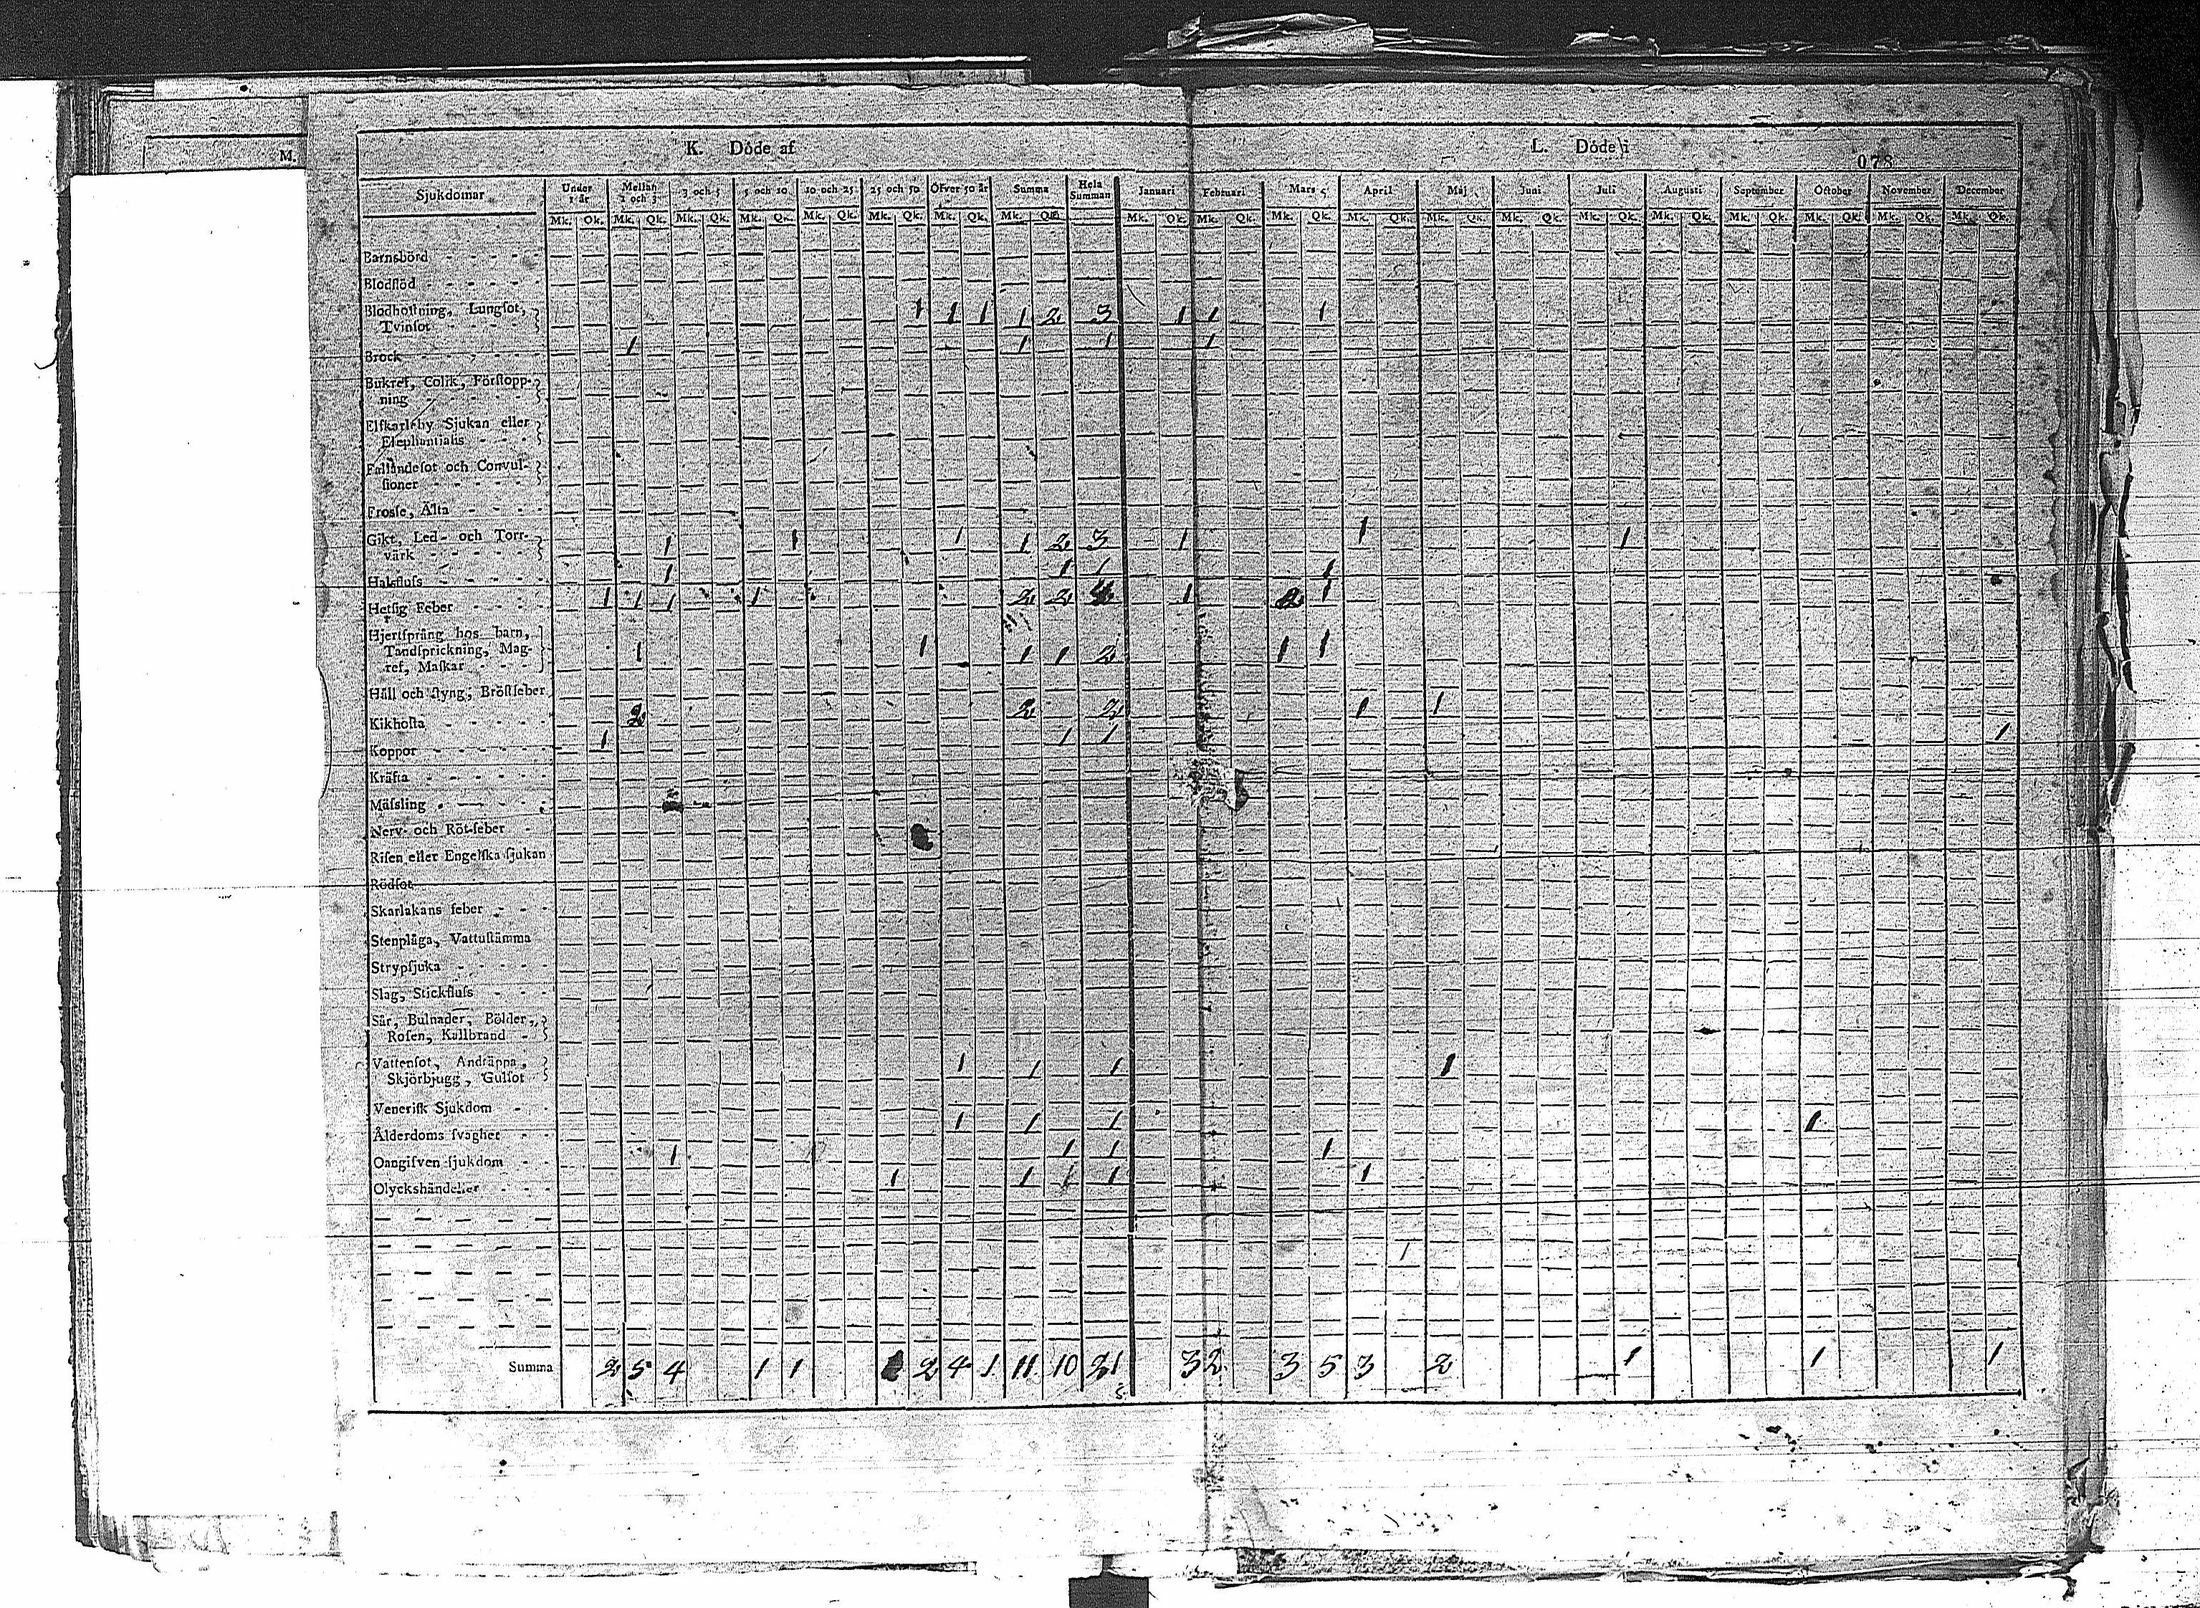 M.
K. Döde af
L. Döde i
078
Sjukdomar Under 1 år Mellan 1 och 3 3 och 5 5 och 10 10 och 25 25 och 50 Öfver 50 år Summa Hela Summan Januari Februari Mars April Maj Juni Juli Augusti September October November December
Mk. Qk. Mk. Qk. Mk. Qk. Mk. Qk. Mk. Qk. Mk. Qk. Mk. Qk. Mk. Qk. Mk. Qk. Mk. Qk. Mk. Qk. Mk. Qk. Mk. Qk. Mk. Qk. Mk. Qk. Mk. Qk. Mk. Qk. Mk. Qk. Mk. Qk. Mk. Qk.
Barnsbörd
Blodſlöd
Blodhoſtning, Lungſot,
Tvinſot 1 1 1 1 2 3 1 1 1
Brock 1 1 1 1
Bukref, Colik, Förſtopp-
ning
Elfkarleby Sjukan eller
Elephantiaſis
Fallandeſot och Convul-
ſioner
Frosſe, Älta
Gikt, Led- och Torr-
värk 1 1 1 1 2 3 1 1 1
Halsfluſs 1 1 1 1
Hetſig Feber 1 1 1 1 2 2 4 1 2 1
Hjertſprång hos barn,
Tandſprickning, Mag-
ref, Maſkar 1 1 1 1 2 1 1
Håll och ſtyng, Bröſtfeber
Kikhoſta 2 2 2 1 1
Koppor 1 1 1 1
Kräfta
Mäſsling
Nerv- och Röt-feber
Riſen eller Engelſka ſjukan
Rödſot
Skarlakans feber
Stenplåga, Vattuſtämma
Strypſjuka
Slag, Stickfluſs
Sår, Bulnader, Bölder,
Roſen, Kallbrand
Vattenſot, Andtäppa,
Skjörbjugg, Gulſot 1 1 1 1
Veneriſk Sjukdom
Ålderdoms ſvaghet 1 1 1 1
Oangifven ſjukdom 1 1 1 1
Olyckshändelſer 1 1 1 1 1
Summa 2 5 4 1 1 2 4 1 11 10 21 3 2 3 5 3 2 1 1 1